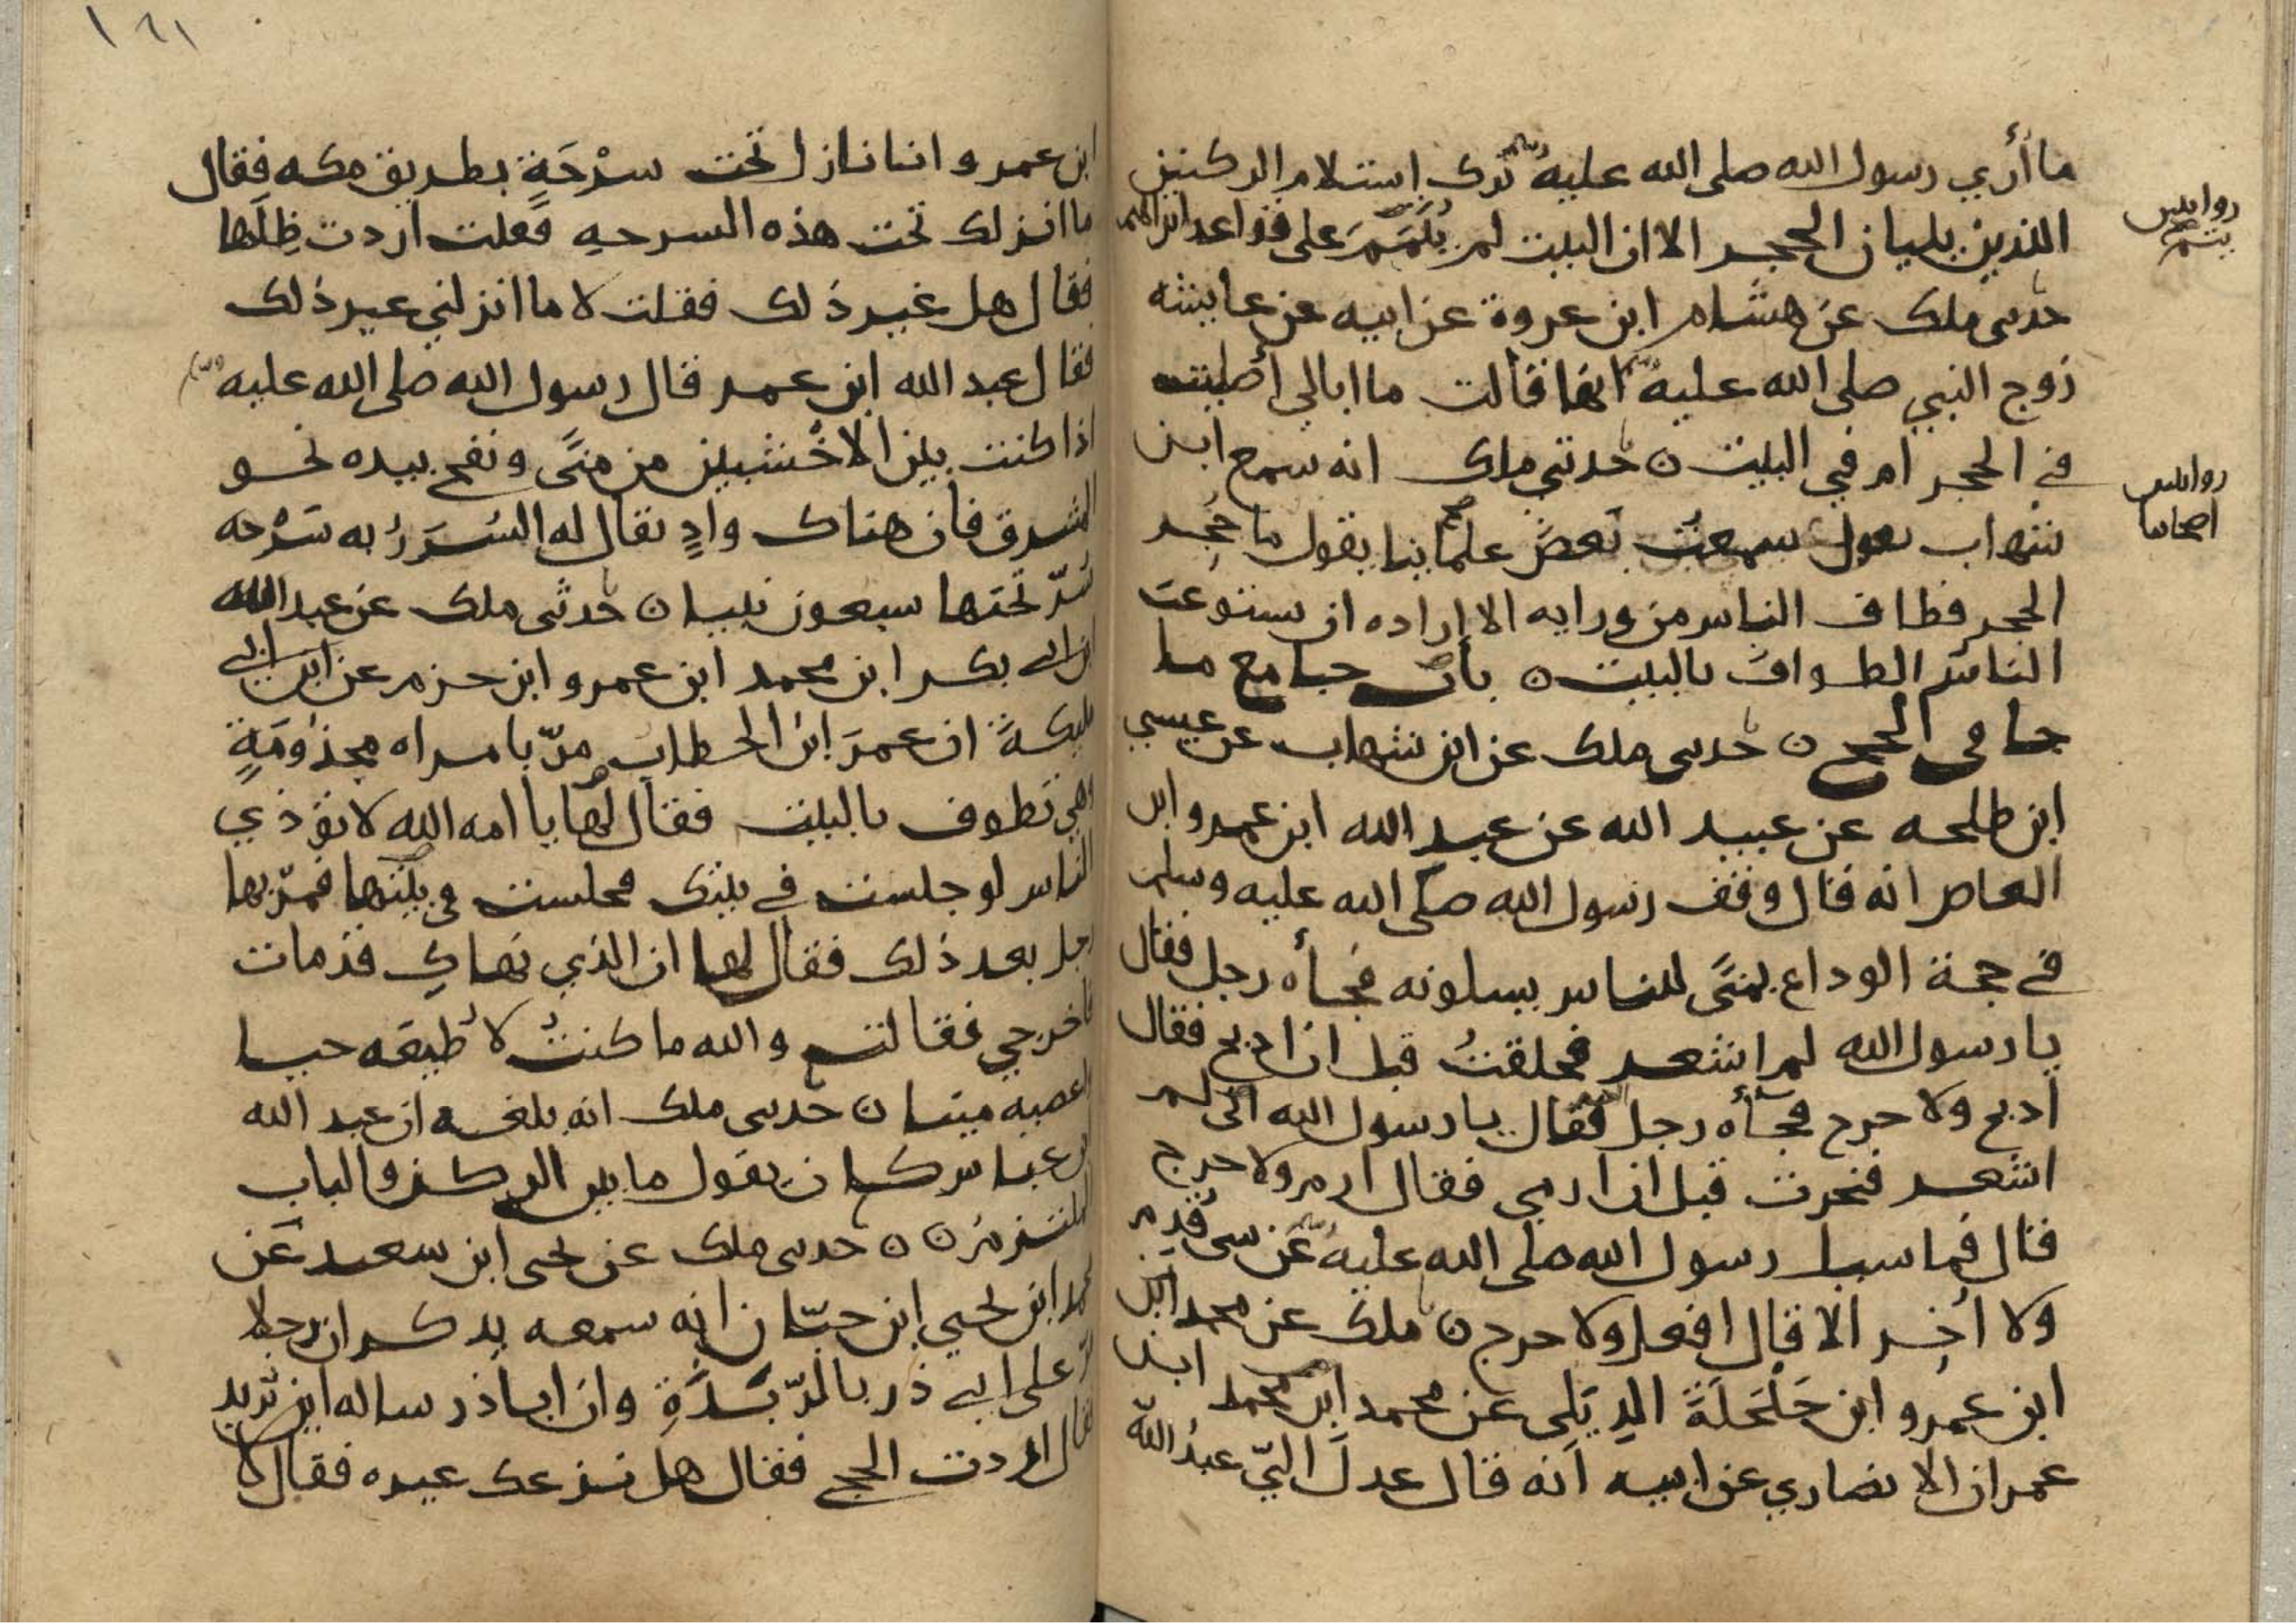 ما أُري رسول الله صلى الله عليه وسلم ترك استلام الركنين
اللذين يليان الحجر الا ان البيت لم يُتَمَّمَ على قواعد ابراهيم
حدثني ملك عن هشام ابن عروة عن ابيه عن عايشه
زوج النبي صلى الله عليه وسلم انها قالت ما ابالي أصليت
في الحجر ام في البيت ن حدثني ملك انه سمع ابن
شهاب يقول سمعت بعض علمائنا يقول ما حُجِر
الحجر فطاف الناس من ورايه الا اراده ان يستوعب
الناس الطواف بالبيت ن باب جامع ما
جا في الحج ن حدثني ملك عن ابن شهاب عن عيسي
ابن طلحه عن عبيد الله عن عبد الله ابن عمرو ابن
العاص انه قال وقف رسول الله صلى الله عليه وسلم
في حجة الوداع بمنًى للناس يسلونه فجأه رجل فقال
يا رسول الله لم اشعر فحلقتُ قبل ان اذبح فقال
اذبح ولا حرج فجأه رجل فقال يا رسول الله اني لم
اشعر فنحرت قبل ان ارمي فقال ارم ولا حرج
قال فما سيل رسول الله صلى الله عليه وسلم عن شي قُدِّم
ولا أُخِّر الا قال افعل ولا حرج ن ملك عن محمد ابن
ابن عمرو ابن حَلْحَلَةَ الدِيَلي عن محمد ابن محمد ابن
عمران الانصاري عن ابيه انه قال عدل اليّ عبدُ الله
رواية
يتم
رواية
اصحابنا
١٦١
ابن عمر و انا نازل تحت سرْحَةٍ بطريق مكه فقال
ما انزلك تحت هذه السرحه فقلت اردت ظِلَها
فقال هل غير ذلك فقلت لا ما انزلني غير ذلك
فقال عبد الله ابن عمر قال رسول الله صلى الله عليه وسلم
اذا كنت بين الاخْشبين من منًى ونفح بيده نحو
المشرق فان هناك وادٍ يقال له السُرَرُ به سَرْحه
سُرّ تحتها سبعون نبيا ن حدثني ملك عن عبد الله
ابن ابي بكر ابن محمد ابن عمرو ابن حزم عن ابن ابي
مليكةَ ان عمرَ ابن الخطاب مرّ بامراه مجذومَةٍ
وهي تطوف بالبيت فقال لها يا امه الله لا تؤذي
الناس لو جلست في بيتك فجلست في بيتها فمرّ بها
رجل بعد ذلك فقال لها ان الذي نهاكِ قد مات
فاخرجي فقالت والله ما كنتُ لاُطيعَه حيا
واعصيه ميتا ن حدثني ملك انه بلغه ان عبد الله
ابن عباس كان يقول ما بين الركن والباب
الملتزم ن ن حدثني ملك عن يحيى ابن سعيد عن
محمد ابن يحيي ابن حبّان انه سمعه يذكر ان رجلا
مرّ على ابي ذر بالرّبَذَةِ وان ابا ذر ساله اين تريد
فقال اردت الحج فقال هل نزعك غيره فقال لا